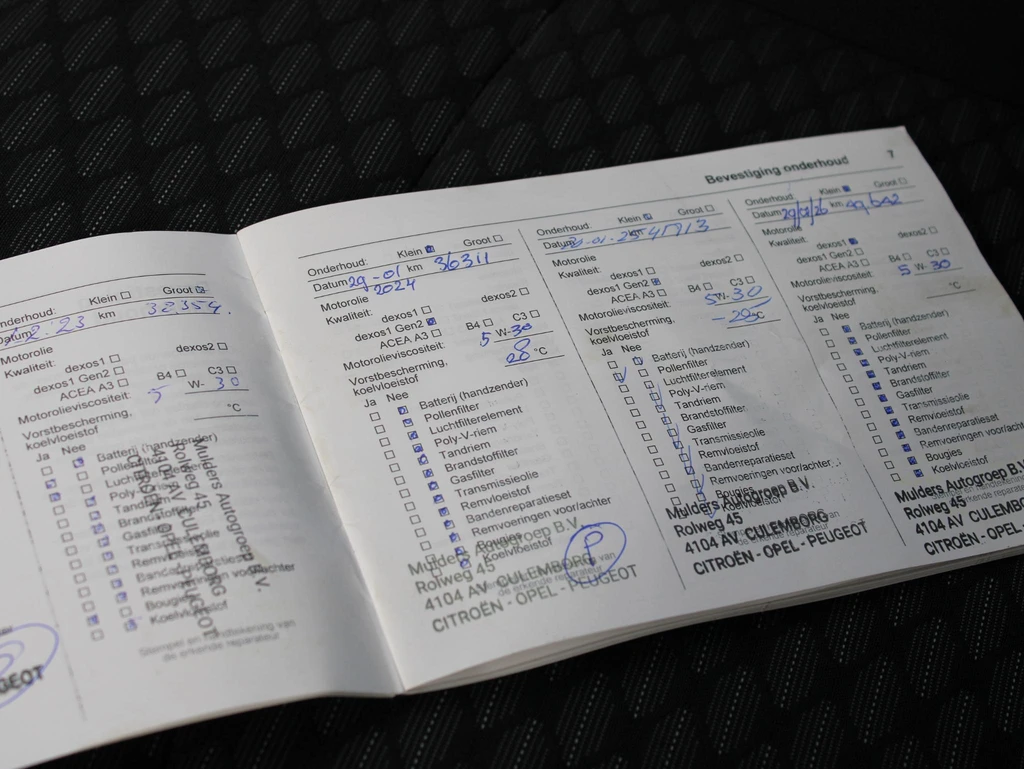 Bevestiging onderhoud 7
Onderhoud: Klein Groot
32354
km
Motorolie
Kwaliteit: dexos1 dexos2
dexos1 Gen2
ACEA A3 B4 C3
Motorolieviscositeit: 5 W- 30
Vorstbescherming,
koelvloeistof °C
Ja Nee
Batterij (handzender)
Pollenfilter
Poly-V-riem
Tandriem
Brandstoffilter
Gasfilter
Transmissieolie
Remvloeistof
Bandenreparatieset
Remvoeringen voor/achter
Bougies
Koelvloeistof
Stempel en handtekening van
de erkende reparateur
Mulders Autogroep B.V.
Rolweg 45
4104 AV CULEMBORG
CITROËN - OPEL - PEUGEOT
GEOT
Onderhoud: Klein Groot
Datum 29-01 km 36311
2024
Motorolie
Kwaliteit: dexos1 dexos2
dexos1 Gen2
ACEA A3 B4 C3
Motorolieviscositeit: 5 W-30
Vorstbescherming,
koelvloeistof 28 °C
Ja Nee
Batterij (handzender)
Pollenfilter
Luchtfilterelement
Poly-V-riem
Tandriem
Brandstoffilter
Gasfilter
Transmissieolie
Remvloeistof
Bandenreparatieset
Remvoeringen voor/achter
Bougies
Koelvloeistof
de erkende reparateur
Mulders Autogroep B.V.
Rolweg 45
4104 AV CULEMBORG
CITROËN - OPEL - PEUGEOT
P
Onderhoud: Klein Groot
Datum -01-25 km 41713
Motorolie
Kwaliteit: dexos1 dexos2
dexos1 Gen2
ACEA A3 B4 C3
Motorolieviscositeit: 5 W- 30
Vorstbescherming,
koelvloeistof °C
Ja Nee
Batterij (handzender)
Pollenfilter
Luchtfilterelement
Poly-V-riem
Tandriem
Brandstoffilter
Gasfilter
Transmissieolie
Remvloeistof
Bandenreparatieset
Remvoeringen voor/achter
Bougies
Koelvloeistof
de erkende reparateur
Mulders Autogroep B.V.
Rolweg 45
4104 AV CULEMBORG
CITROËN - OPEL - PEUGEOT
Onderhoud: Klein Groot
Datum km 49.642
Motorolie
Kwaliteit: dexos1 dexos2
dexos1 Gen2
ACEA A3 B4 C3
Motorolieviscositeit: 5 W- 30
Vorstbescherming,
koelvloeistof °C
Ja Nee
Batterij (handzender)
Pollenfilter
Luchtfilterelement
Poly-V-riem
Tandriem
Brandstoffilter
Gasfilter
Transmissieolie
Remvloeistof
Bandenreparatieset
Remvoeringen voor/achter
Bougies
Koelvloeistof
Mulders Autogroep B.V.
Rolweg 45
4104 AV CULEMBORG
CITROËN - OPEL - PEUGEOT